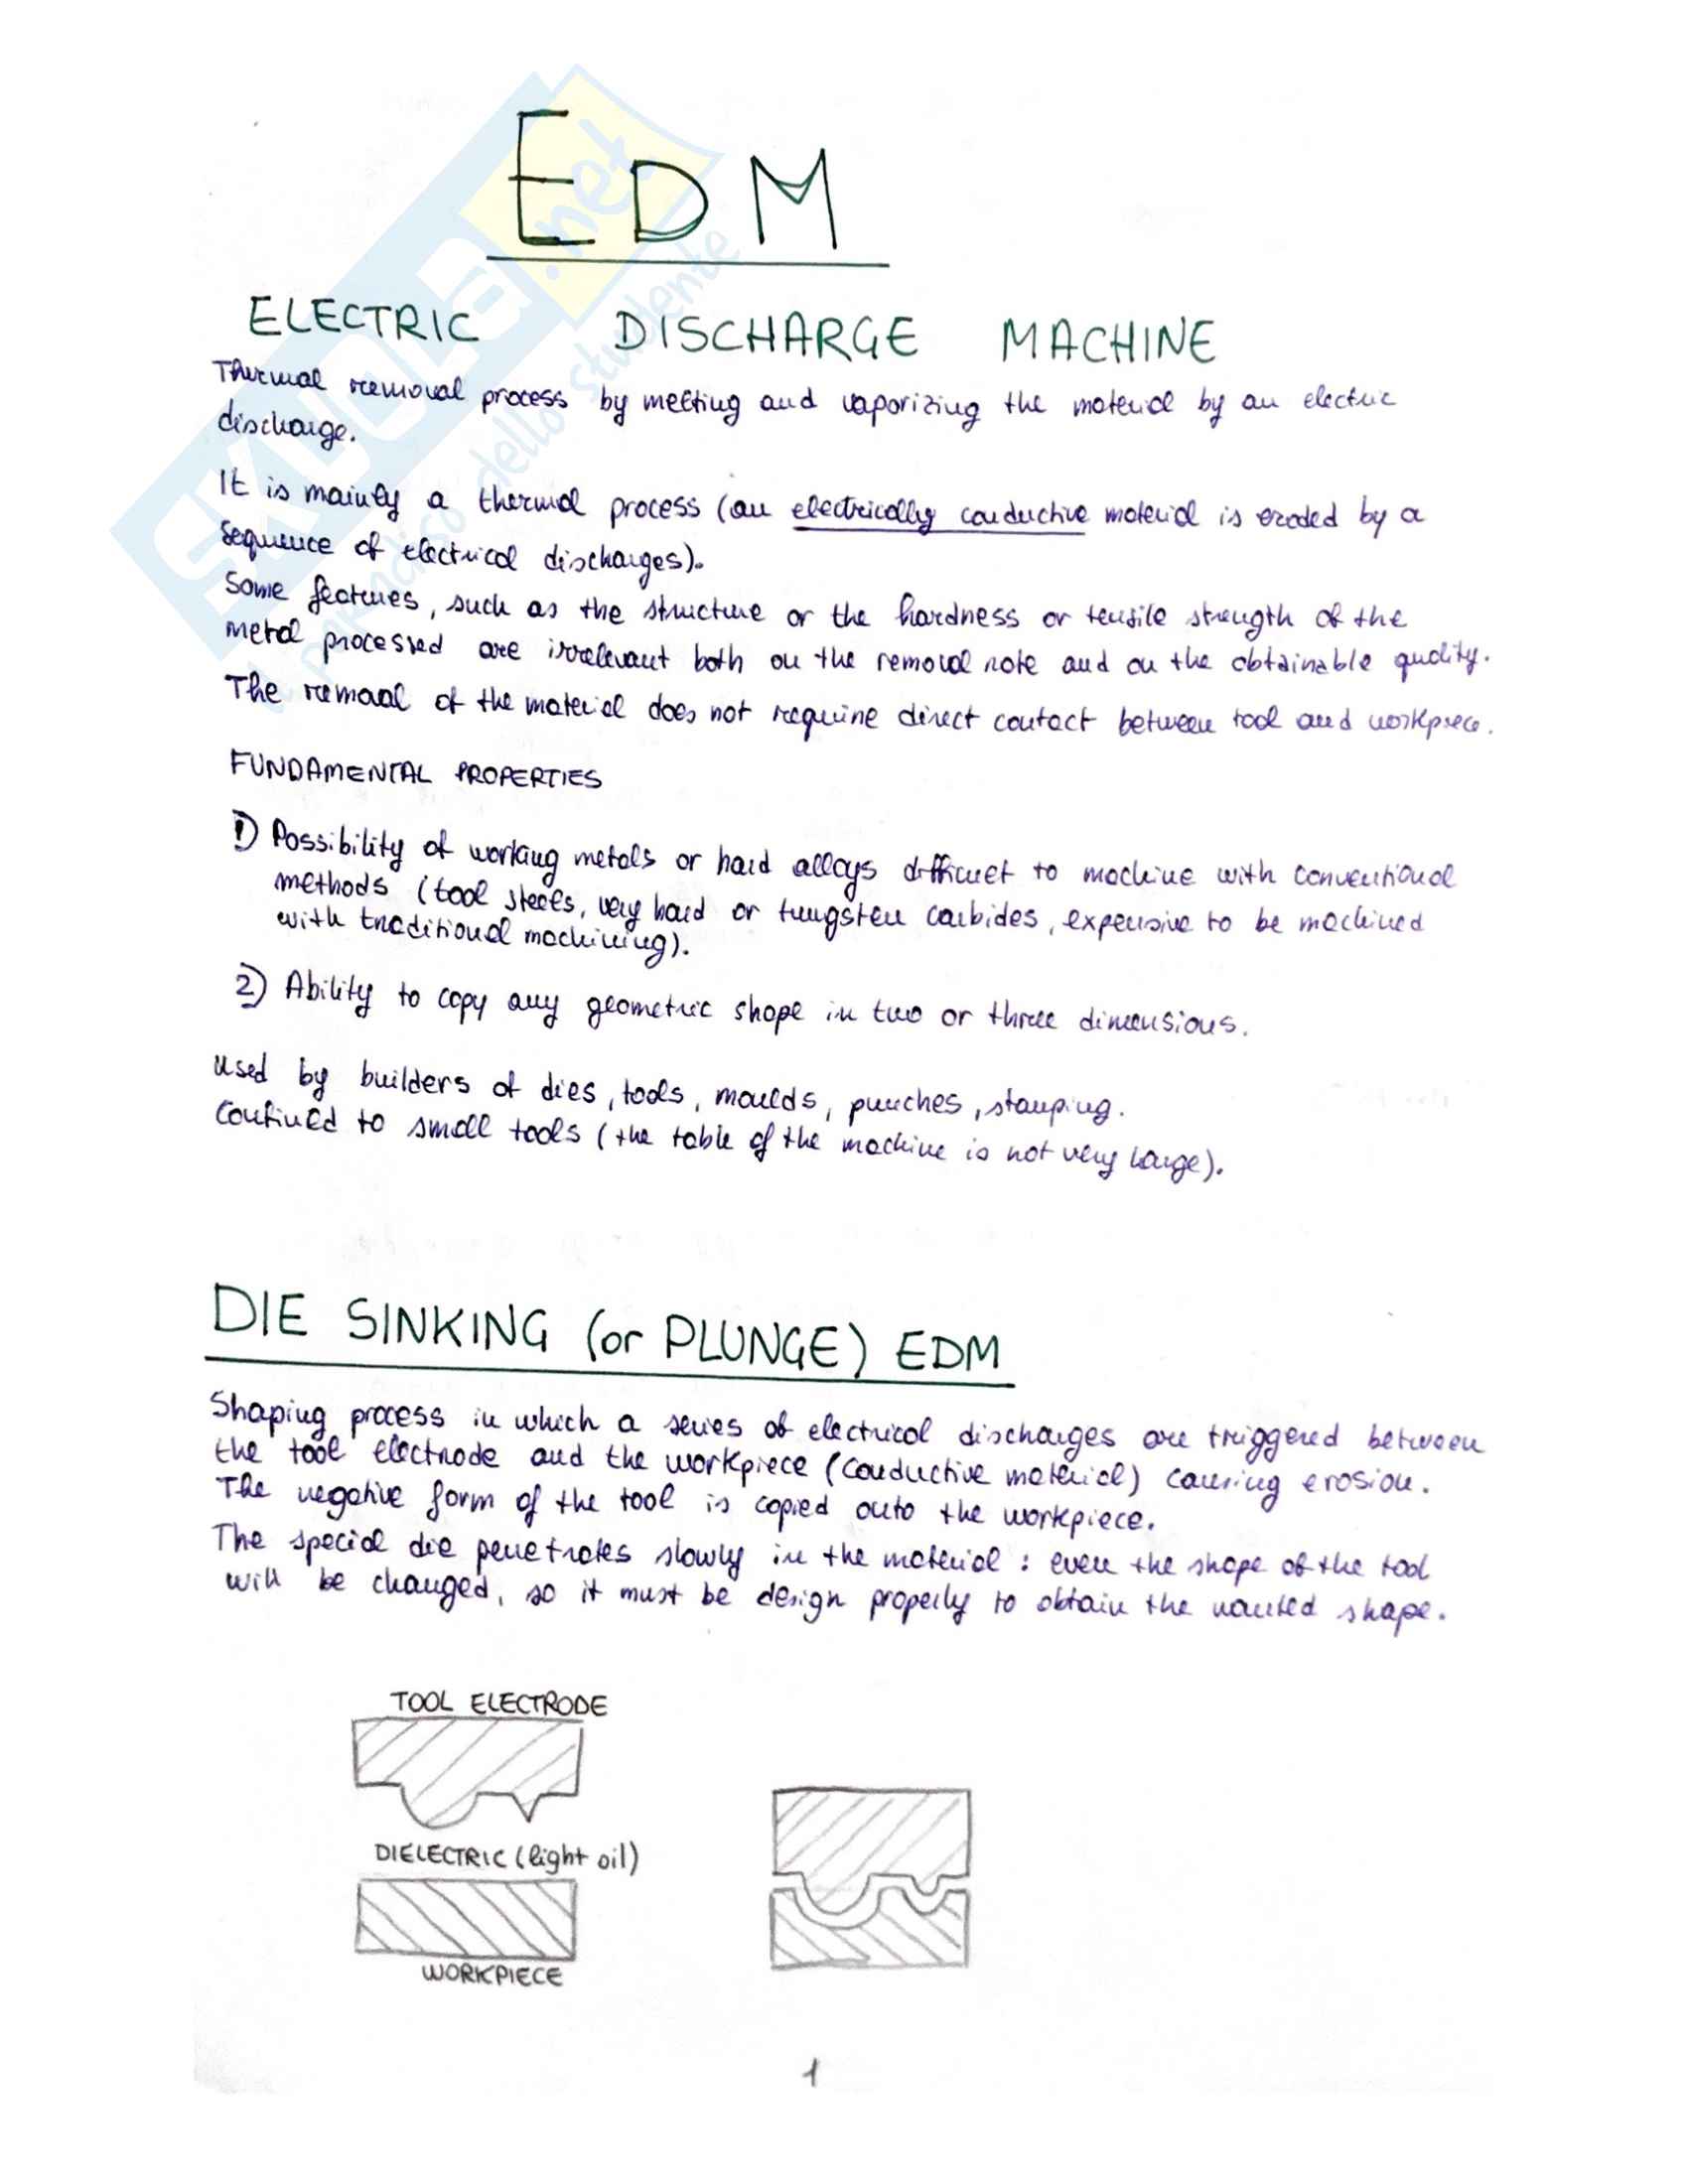 EDM
ELECTRIC DISCHARGE MACHINE
Thermal removal process by melting and vaporizing the material by an electric
discharge.
It is mainly a thermal process (an electrically conductive material is eroded by a
sequence of electrical discharges).
Some features, such as the structure or the hardness or tensile strength of the
metal processed are irrelevant both on the removal rate and on the obtainable quality.
The removal of the material does not require direct contact between tool and workpiece.
FUNDAMENTAL PROPERTIES
1) Possibility of working metals or hard alloys difficult to machine with conventional
methods (tool steels, very hard or tungsten carbides, expensive to be machined
with traditional machining).
2) Ability to copy any geometric shape in two or three dimensions.
Used by builders of dies, tools, moulds, punches, stamping.
Confined to small tools (the table of the machine is not very large).
DIE SINKING (or PLUNGE) EDM
Shaping process in which a series of electrical discharges are triggered between
the tool electrode and the workpiece (conductive material) causing erosion.
The negative form of the tool is copied onto the workpiece.
The special die penetrates slowly in the material: even the shape of the tool
will be changed, so it must be design properly to obtain the wanted shape.
TOOL ELECTRODE
DIELECTRIC (light oil)
WORKPIECE
1
SKUOLA.net
il paradiso dello studente